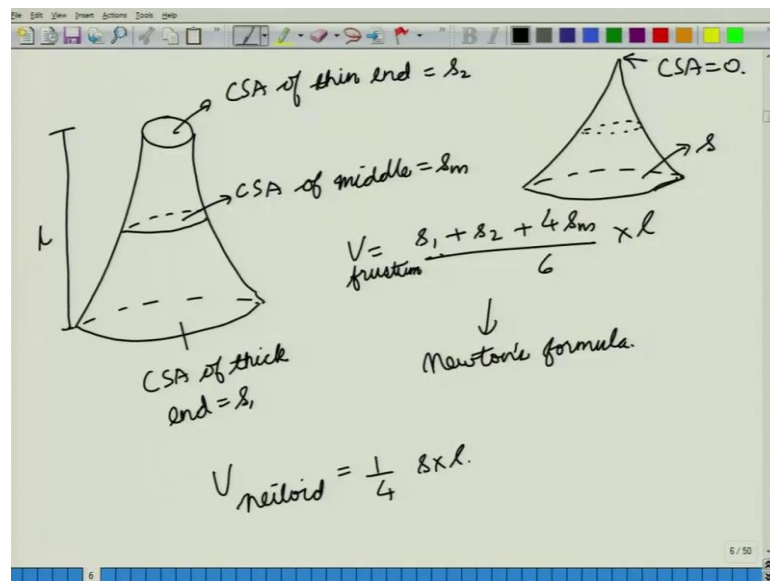 File Edit View Insert Actions Tools Help
CSA of thin end = s₂
CSA = 0.
CSA of middle = sₘ
s
l
V frustum = (s₁ + s₂ + 4sₘ) / 6 × l
Newton's formula.
CSA of thick
end = s₁
V neiloid = 1/4 s × l.
6 / 50
6